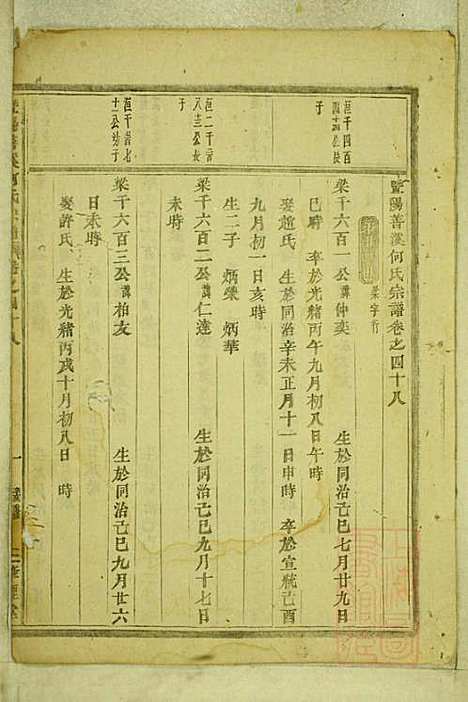 暨陽善溪何氏宗譜卷之四十八
梁字行
桓千四百
公長
子
梁千六百一公諱仲奕
生於同治己巳七月廿九日
巳時
卒於光緒丙午九月初八日午時
娶趙氏
生於同治辛未正月十一日申時
卒於宣統己酉
九月初一日亥時
生二子
炳榮
炳華
桓二千
公長
子
梁千六百二公諱仁達
生於同治己巳九月十七日
未時
桓千
七
十一公幼子
梁千六百三公諱柏友
生於同治己巳九月廿六
日未時
娶許氏
生於光緒丙戌十月初八日
時
一